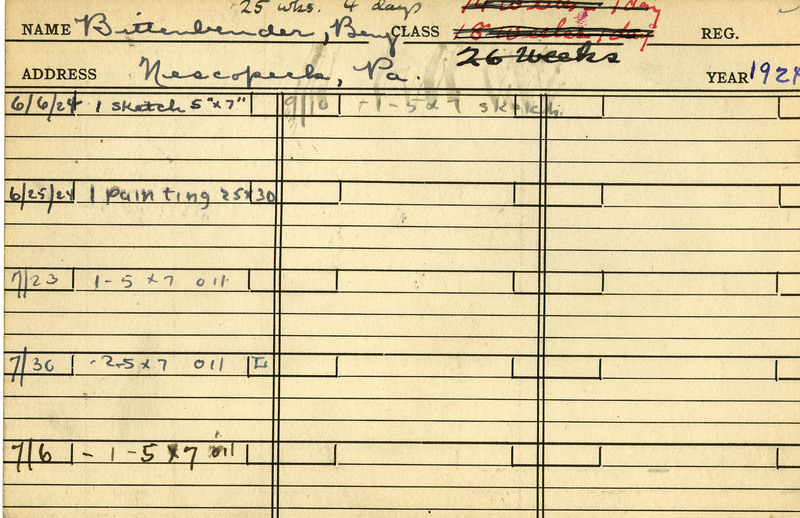 25 wks. 4 days
NAME Bittenbender, Benj CLASS 18 Weeks, 1 day REG.
26 Weeks
ADDRESS Nescopeck, Pa. YEAR 1924
6/6/24 1 sketch 5"x7" 9/10 -1-5x7 sketch.
6/25/24 1 painting 25x30
7/23 1-5x7 oil
7/30 -2-5x7 oil I
7/6 - 1-5x7 oil